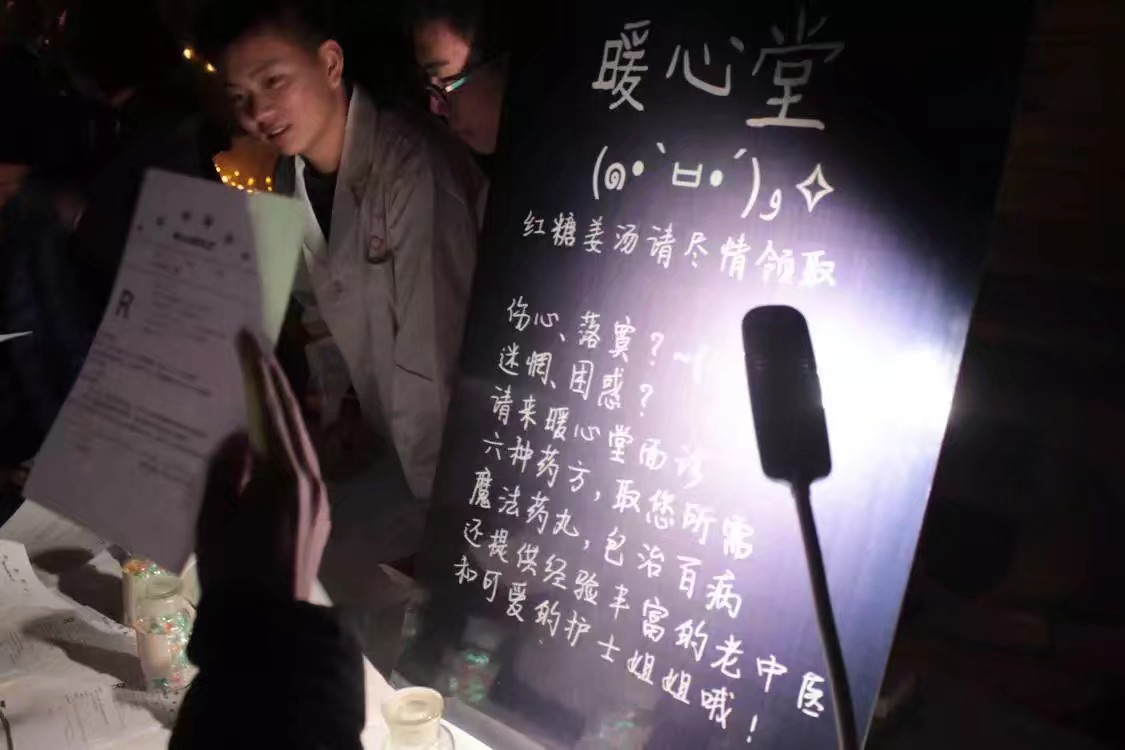 暖心堂
(๑•̀ㅂ•́)و✧
红糖姜汤请尽情领取
伤心、落寞？~
迷惘、困惑？
请来暖心堂面诊
六种药方，取您所需
魔法药丸，包治百病
还提供经验丰富的老中医
和可爱的护士姐姐哦！
R